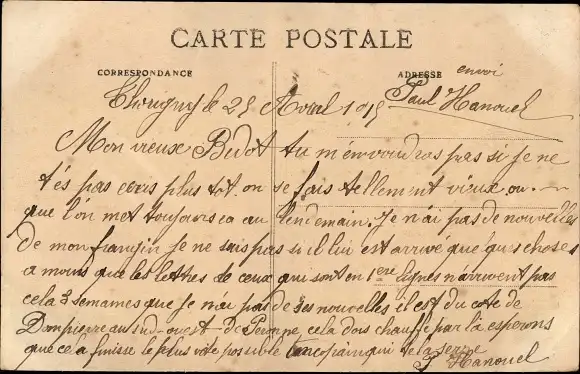 CARTE POSTALE
CORRESPONDANCE
ADRESSE
envoi
Paul Hanouel
le 25 Avril 1915
Mon vieuse Bidot tu m'envoudras pas si je ne
t'és pas ecris plus tot on se fais tellement vieux ou
que l'on met toujours ca au lendemain. Je n'ai pas de nouvelles
de mon frangin je ne sais pas si il lui est arrivé quelques choses
a moins que les lettres de ceux qui sont en 1ere lignes n'arrivent pas
cela 3 semaines que je n'ai pas de ses nouvelles il est du coté de
Dompierre au sud-ouest de Peronne cela dois chauffé par là esperons
que cela finisse le plus vite possible ton copain qui te la serre
P Hanouel